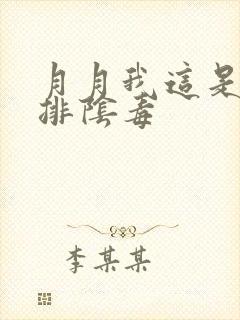 月月我這是
排陰毒
李某某